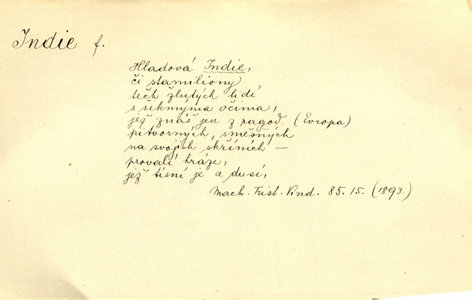 Indie f.
Hladová Indie,
či stamiliony
těch žlutých lidí
s šikmýma očima,
jež znáš jen z pagod (Evropa)
pitvorných, směšných
na svojich skříních —
provalí hráze,
jež tísní je a dusí,
Mach. Trist. Vind. 85.15. (1893.)